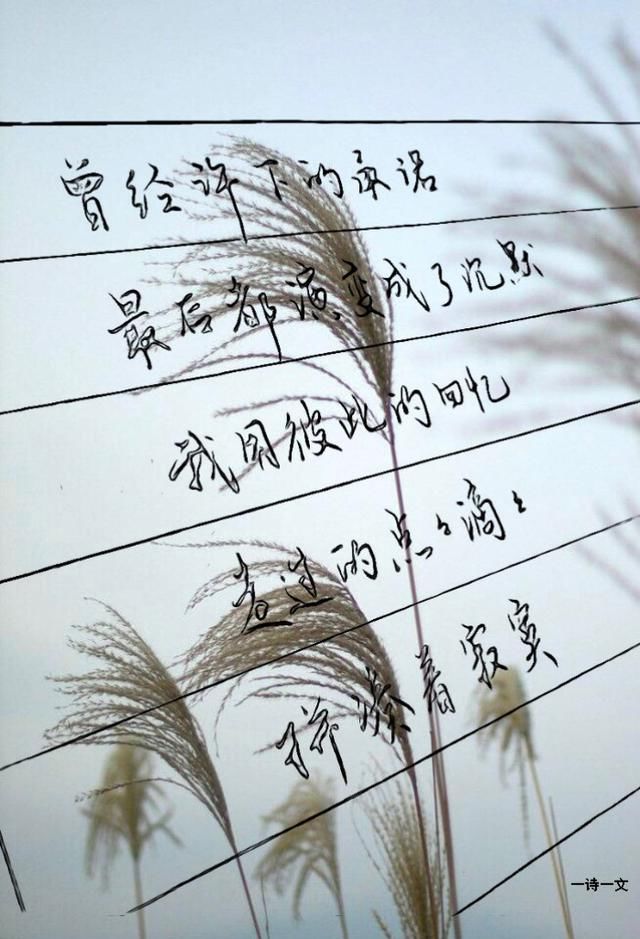 曾经许下的承诺
最后都演变成了沉默
我用彼此的回忆
过的点々滴々
拼凑着寂寞
一诗一文